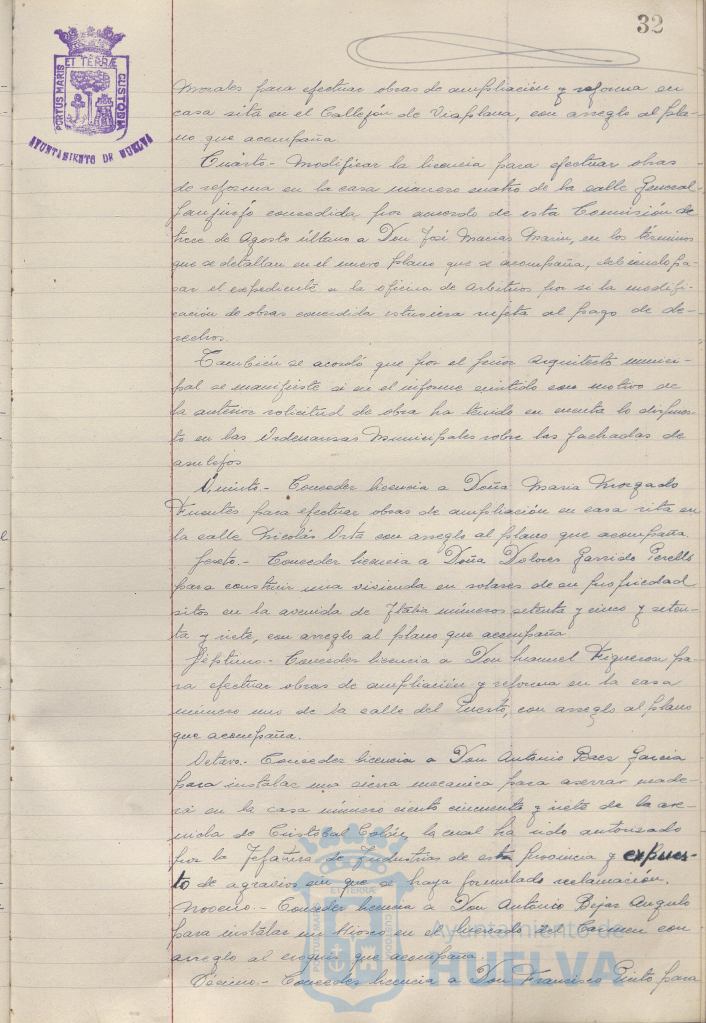 32
PORTUS MARIS ET TERRÆ CUSTODIA
AYUNTAMIENTO DE HUELVA
Morales para efectuar obras de ampliación y reforma en
casa sita en el Callejón de Viaplana, con arreglo al pla-
no que acompaña.
Cuarto.- Modificar la licencia para efectuar obras
de reforma en la casa número cuatro de la calle General
Sanjurjo concedida por acuerdo de esta Comisión de
trece de Agosto último a Don José Macias Marin, en los términos
que se detallan en el nuevo plano que se acompaña, debiendo pa-
sar el expediente a la oficina de Arbitrios por si la modifi-
cación de obras concedida estuviera sujeta al pago de de-
rechos.
También se acordó que por el Señor Arquitecto munici-
pal se manifieste si en el informe emitido con motivo de
la anterior solicitud de obra ha tenido en cuenta lo dispues-
to en las Ordenanzas Municipales sobre las fachadas de
azulejos
Quinto.- Conceder licencia a Doña Maria Morgado
Fuentes para efectuar obras de ampliación en casa sita en
la calle Nicolás Orta con arreglo al plano que acompaña.
Sexto.- Conceder licencia a Doña Dolores Garrido Perelló
para construir una vivienda en solares de su propiedad
sitos en la avenida de Italia números setenta y cinco y seten-
ta y siete, con arreglo al plano que acompaña
Séptimo.- Conceder licencia a Don Manuel Figueroa pa-
ra efectuar obras de ampliación y reforma en la casa
número uno de la calle del Puerto, con arreglo al plano
que acompaña.
Octavo.- Conceder licencia a Don Antonio Baez Garcia
para instalar una sierra mecanica para aserrar made-
ra en la casa número ciento cincuenta y siete de la ave-
nida de Cristóbal Colón, la cual ha sido autorizado
por la Jefatura de Industrias de esta provincia y expues-
to de agravios sin que se haya formulado reclamación.
Noveno.- Conceder licencia a Don Antonio Bejar Angulo
para instalar un kiosco en el mercado del Carmen con
arreglo al croquis que acompaña
Décimo.- Conceder licencia a Don Francisco Pinto para
Ayuntamiento de
HUELVA